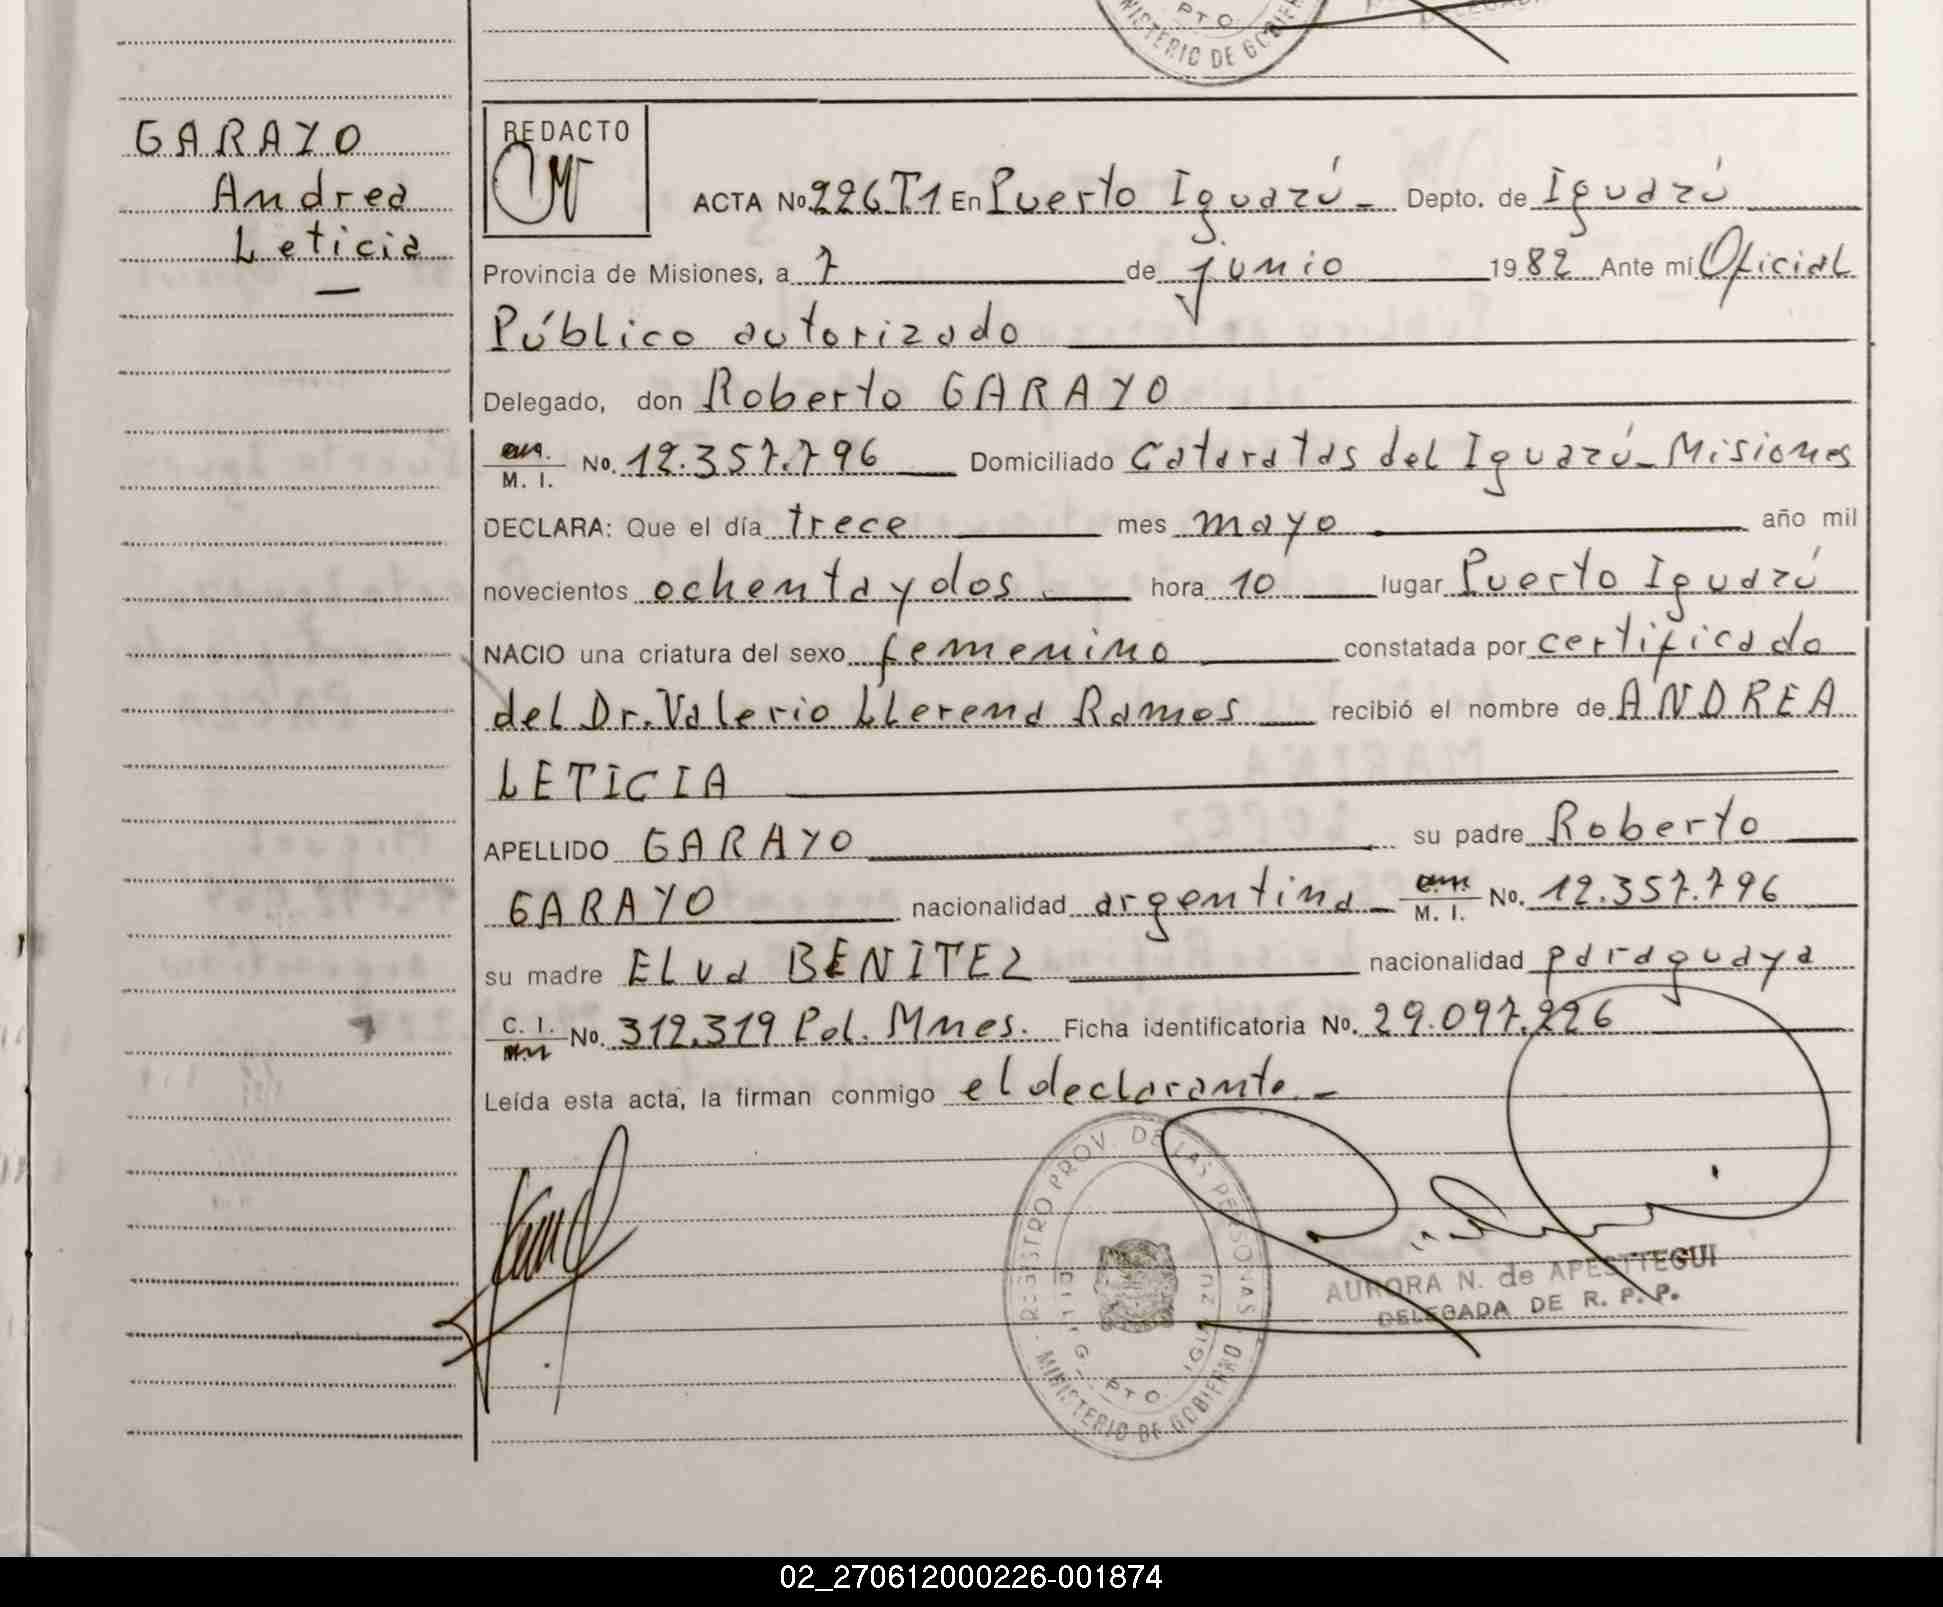 PTO.
MINISTERIO DE GOBIERNO
GARAYO
Andrea
Leticia
REDACTO
ACTA No 226 T.1 En Puerto Iguazú - Depto. de Iguazú
Provincia de Misiones, a 7 de junio 1982 Ante mi Oficial
Público autorizado
Delegado, don Roberto GARAYO
M. I. No. 12.357.796 Domiciliado Cataratas del Iguazú - Misiones
DECLARA: Que el día trece mes mayo año mil
novecientos ochenta y dos hora 10 lugar Puerto Iguazú
NACIO una criatura del sexo femenino constatada por certificado
del Dr. Valerio Llerena Ramos recibió el nombre de ANDREA
LETICIA
APELLIDO GARAYO su padre Roberto
GARAYO nacionalidad argentina - M. I. No. 12.357.796
su madre ELva BENITEZ nacionalidad paraguaya
C. I. No. 312.319 Pol. Mnes. Ficha identificatoria No. 29.097.226
Leída esta acta, la firman conmigo el declarante. -
REGISTRO PROV. DE LAS PERSONAS
MINISTERIO DE GOBIERNO
PTO. IGUAZU
AURORA N. de APESTTEGUI
DELEGADA DE R. P. P.
02_270612000226-001874